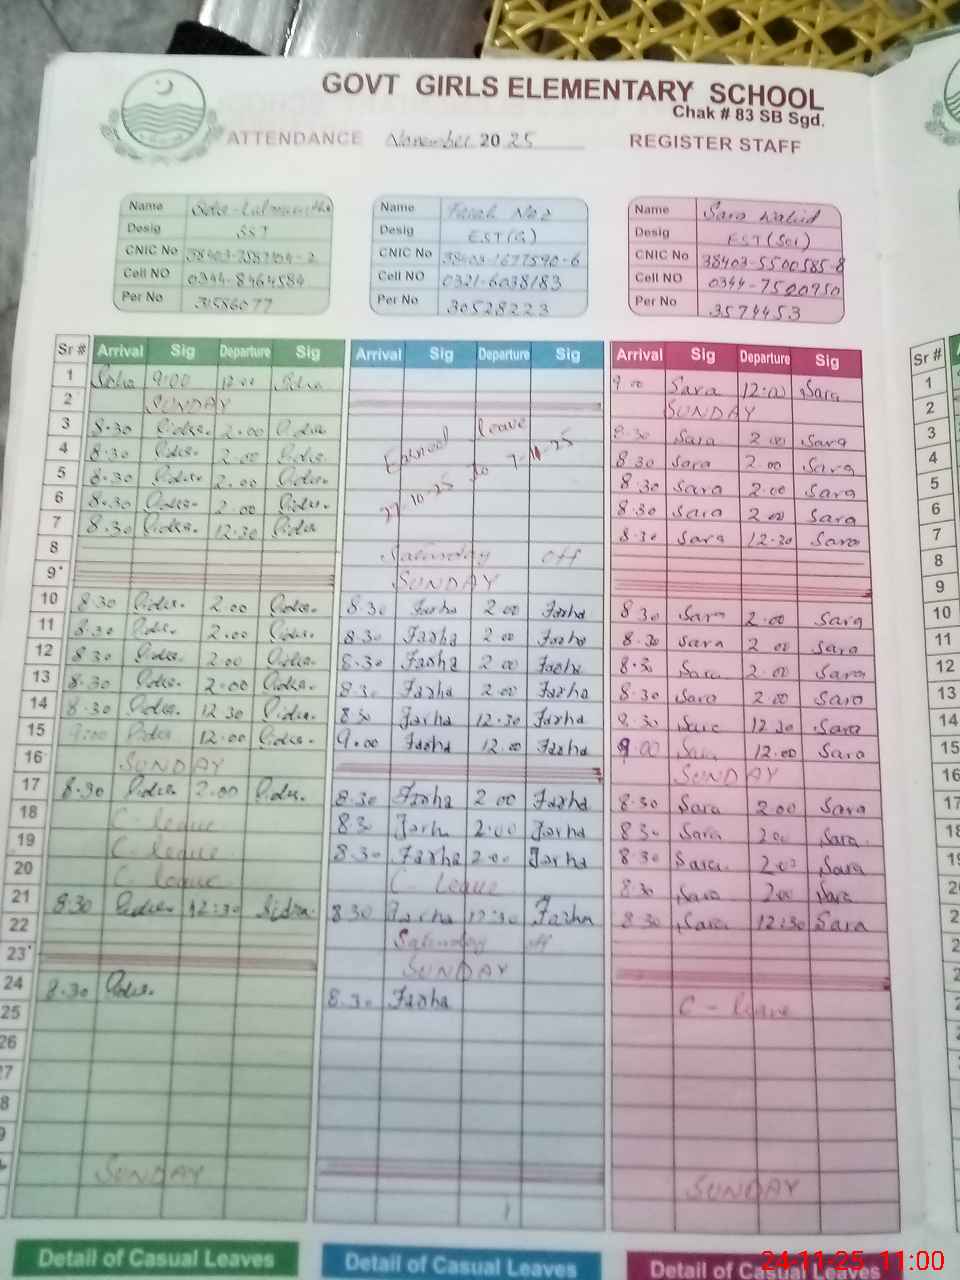 GOVT GIRLS ELEMENTARY SCHOOL
Chak # 83 SB Sgd.
ATTENDANCE November 2025 REGISTER STAFF
Name
Desig SST
CNIC No
Cell NO 0344-8464584
Per No 31586077
Name Farah Naz
Desig EST(G)
CNIC No 38403-1677590-6
Cell NO 0321-6038183
Per No 30528223
Name Sara Walid
Desig EST(Sci)
CNIC No 38403-5500585-8
Cell NO 0344-7520950
Per No 3574453
Sr # Arrival Sig Departure Sig Arrival Sig Departure Sig Arrival Sig Departure Sig Sr #
1 9:00 12:00 9:00 Sara 12:00 Sara 1
2 SUNDAY SUNDAY 2
3 8:30 2:00 Earned leave 8:30 Sara 2:00 Sara 3
4 8:30 2:00 27-10-25 to 7-11-25 8:30 Sara 2:00 Sara 4
5 8:30 2:00 8:30 Sara 2:00 Sara 5
6 8:30 2:00 8:30 Sara 2:00 Sara 6
7 8:30 12:30 8:30 Sara 12:30 Sara 7
8 Saturday off 8
9 SUNDAY 9
10 8:30 2:00 8:30 Farha 2:00 Farha 8:30 Sara 2:00 Sara 10
11 8:30 2:00 8:30 Farha 2:00 Farha 8:30 Sara 2:00 Sara 11
12 8:30 2:00 8:30 Farha 2:00 Farha 8:30 Sara 2:00 Sara 12
13 8:30 2:00 8:30 Farha 2:00 Farha 8:30 Sara 2:00 Sara 13
14 8:30 12:30 8:30 Farha 12:30 Farha 8:30 Sara 12:30 Sara 14
15 9:00 12:00 9:00 Farha 12:00 Farha 9:00 Sara 12:00 Sara 15
16 SUNDAY SUNDAY 16
17 8:30 2:00 8:30 Farha 2:00 Farha 8:30 Sara 2:00 Sara
18 C-leave 8:30 Farha 2:00 Farha 8:30 Sara 2:00 Sara
19 C leave 8:30 Farha 2:00 Farha 8:30 Sara 2:00 Sara
20 C leave C-leave 8:30 Sara 2:00 Sara
21 8:30 12:30 Sidra 8:30 Farha 12:30 Farha 8:30 Sara 12:30 Sara
22 Saturday off
23 SUNDAY
24 8:30 8:30 Farha C-leave
25
26
SUNDAY SUNDAY
Detail of Casual Leaves Detail of Casual Leaves Detail of Casual Leaves
24-11-25 11:00